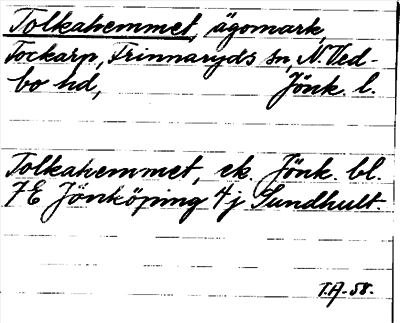 Tolkahemmet, ägomark,
Tockarp, Frinnaryds sn, N. Ved-
bo hd, Jönk. l.
Tolkahemmet, ek. Jönk. bl.
7E Jönköping 4j Sundhult.
T.A-58.